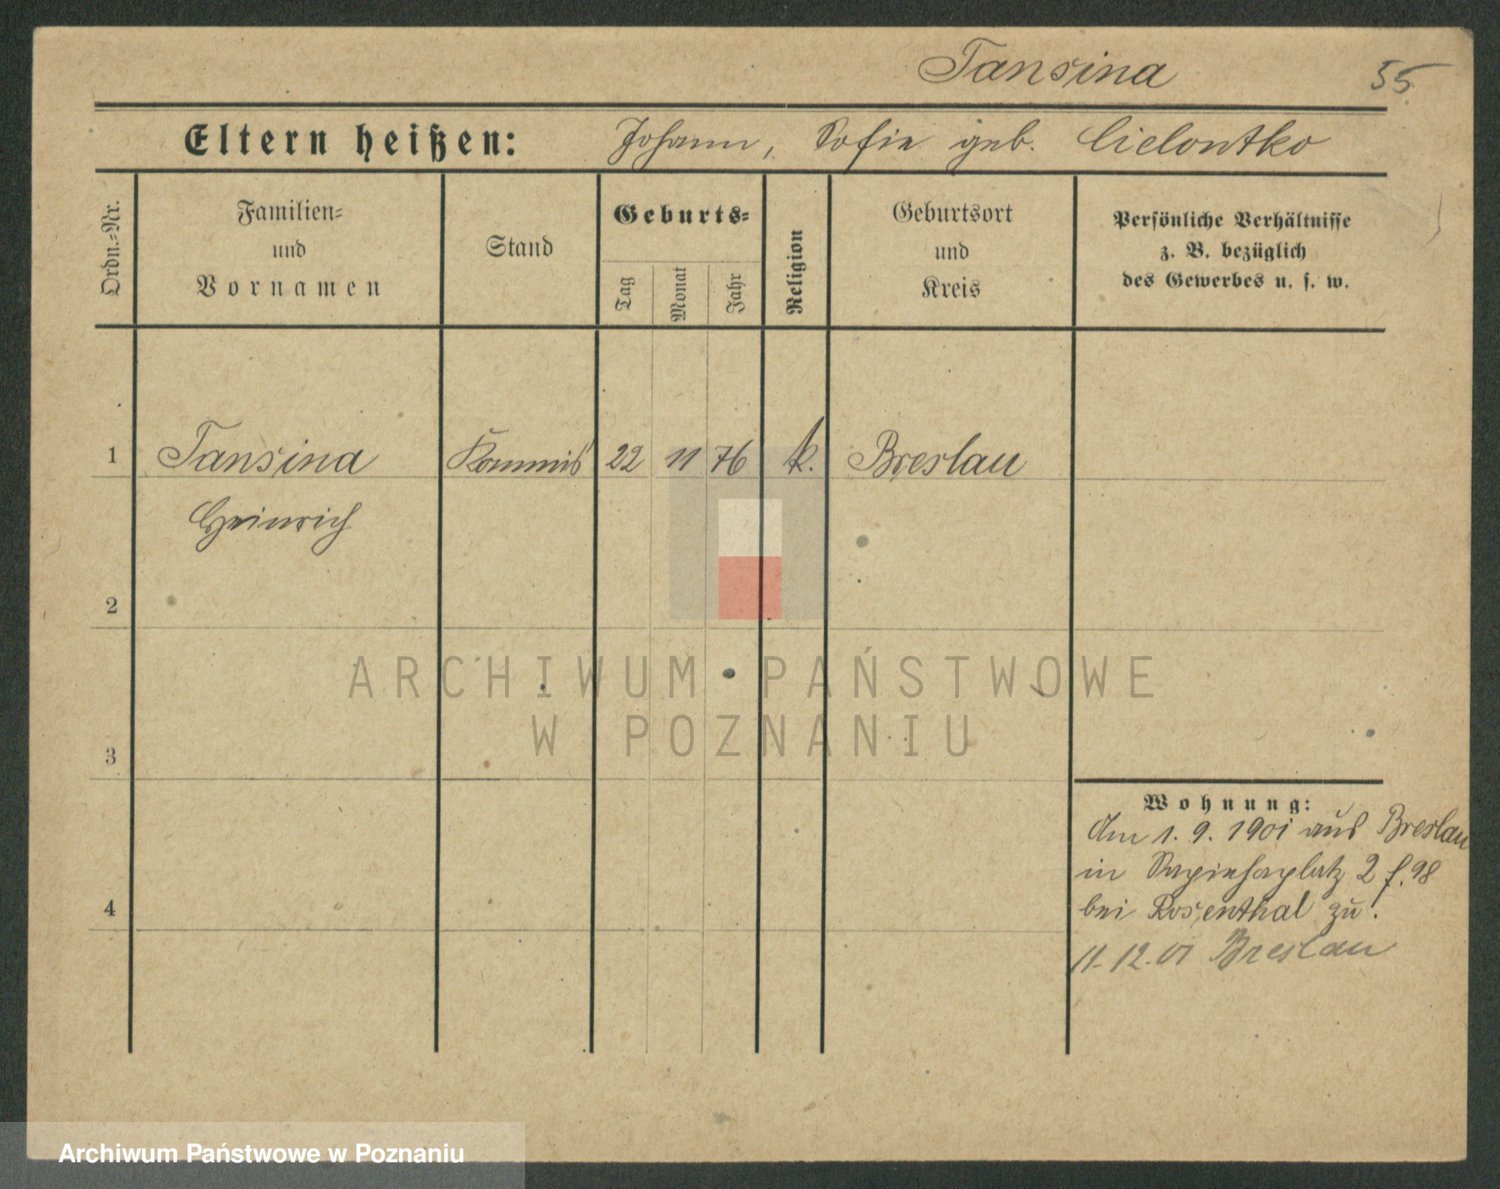 Tansina 55
Eltern heißen: Johann, Sofie geb. Cielontko
Ordn.=Nr.
Familien=
und
Vornamen
Stand
Geburts=
Tag
Monat
Jahr
Religion
Geburtsort
und
Kreis
Persönliche Verhältnisse
z. B. bezüglich
des Gewerbes u. s. w.
1 Tansina Kommis 22 11 76 k. Breslau
Heinrich
2
3
4
Wohnung:
Am 1. 9. 1901 aus Breslau
in Sapiehaplatz 2 f. 98
bei Rosenthal zu.
11. 12. 01 Breslau
ARCHIWUM PAŃSTWOWE
W POZNANIU
Archiwum Państwowe w Poznaniu